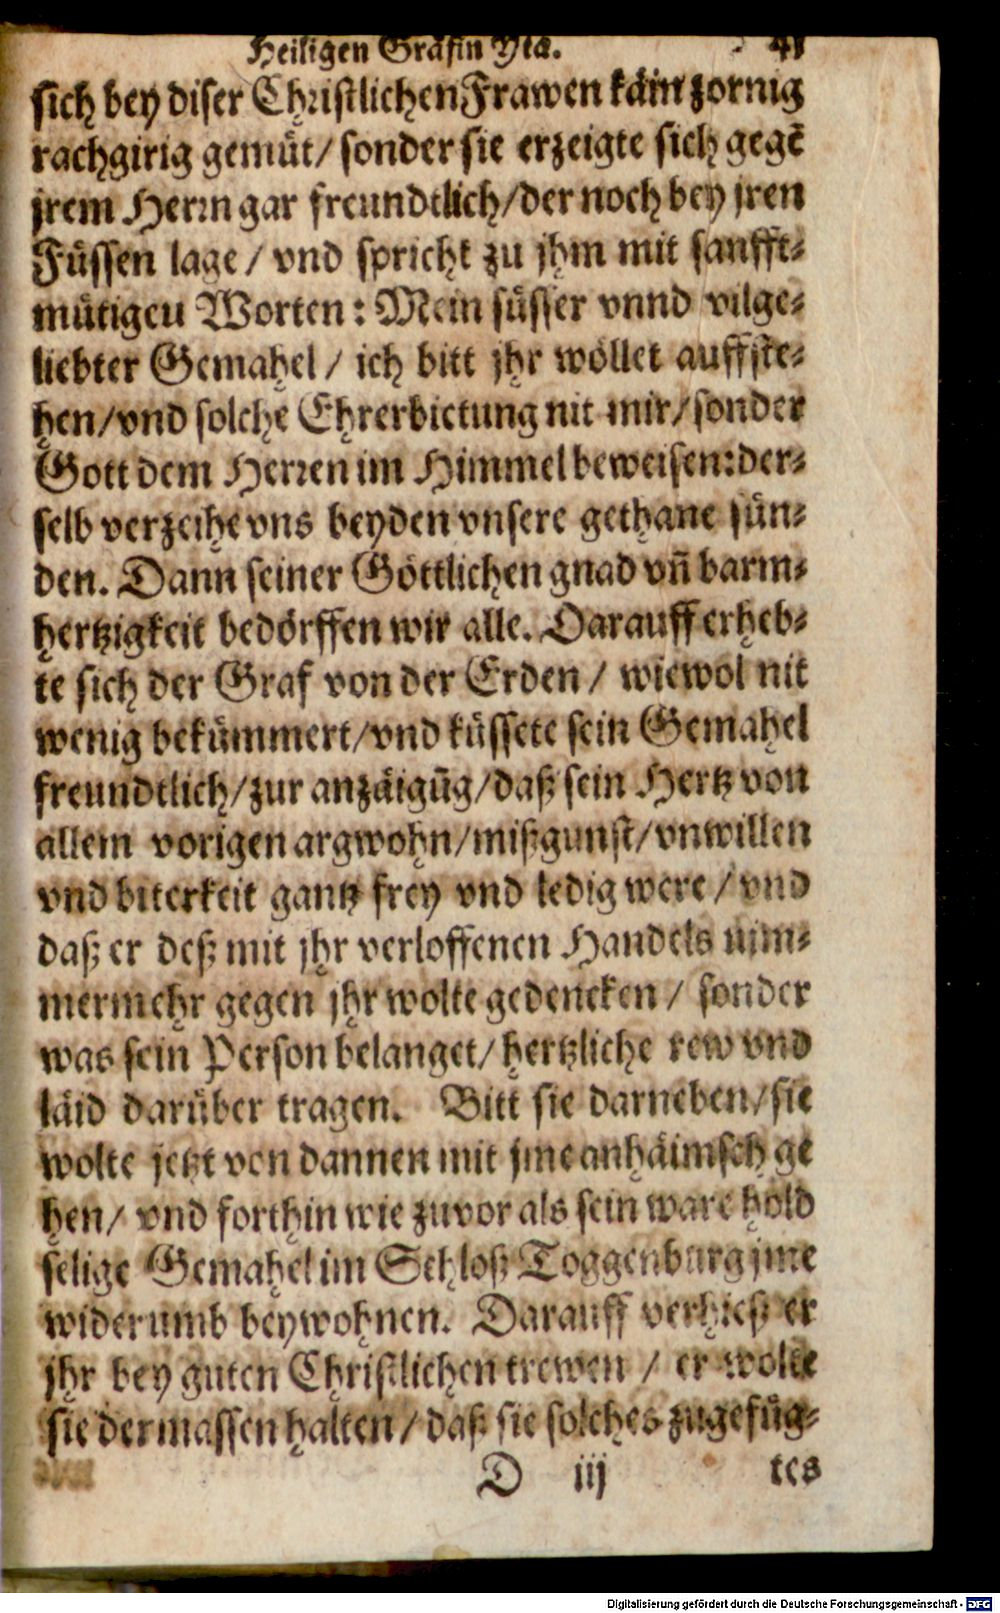 Heiligen Gräfin Yta. 41
sich bey diser Christlichen Frawen käin zornig
rachgirig gemüt/ sonder sie erzeigte sich gegē
jrem Herrn gar freundtlich/der noch bey jren
Füssen lage / vnd spricht zu jhm mit sanfft-
mütigeu Worten: Mein süsser vnnd vilge-
liebter Gemahel / ich bitt jhr wöllet auffste-
hen/vnd solche Ehrerbietung nit mir/sonder
Gott dem Herren im Himmel beweisen:der-
selb verzeihe vns beyden vnsere gethane sün-
den. Dann seiner Göttlichen gnad vñ barm-
hertzigkeit bedörffen wir alle. Darauff erheb-
te sich der Graf von der Erden / wiewol nit
wenig bekümmert/vnd küssete sein Gemahel
freundtlich/zur anzäigūg/daß sein Hertz von
allem vorigen argwohn/mißgunst/vnwillen
vnd biterkeit gantz frey vnd ledig were / vnd
daß er deß mit jhr verloffenen Handels nim-
mermehr gegen jhr wolte gedencken / sonder
was sein Person belanget/hertzliche rew vnd
läid darüber tragen. Bitt sie darneben/sie
wolte jetzt von dannen mit jme anhäimsch ge
hen/ vnd forthin wie zuvor als sein ware hold
selige Gemahel im Schloß Toggenburg jme
widerumb beywohnen. Darauff verhieß er
jhr bey guten Christlichen trewen / er wolte
sie dermassen halten/daß sie solches zugefüg-
D iij tes
Digitalisierung gefördert durch die Deutsche Forschungsgemeinschaft - DFG